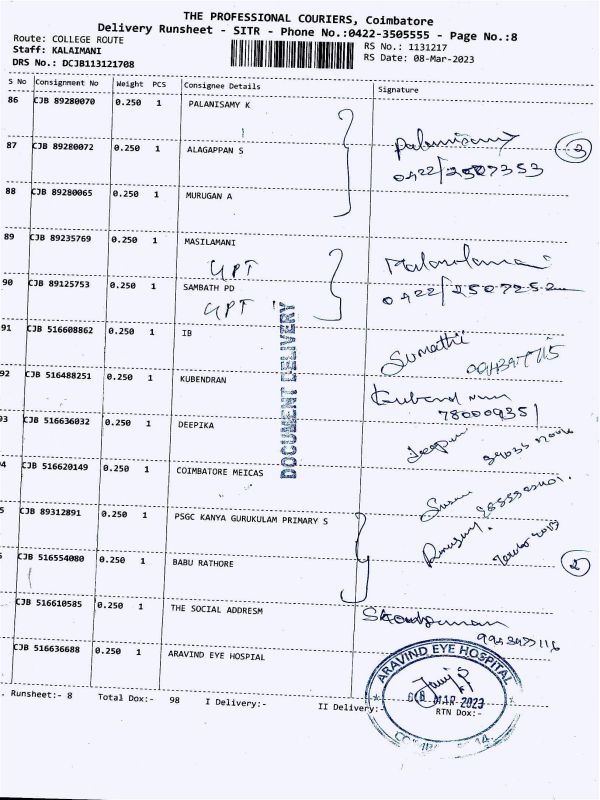 THE PROFESSIONAL COURIERS, Coimbatore
Delivery Runsheet - SITR - Phone No.:0422-3505555 - Page No.:8
Route: COLLEGE ROUTE
Staff: KALAIMANI
DRS No.: DCJB113121708
RS No.: 1131217
RS Date: 08-Mar-2023
S No Consignment No Weight PCS Consignee Details Signature
86 CJB 89280070 0.250 1 PALANISAMY K
87 CJB 89280072 0.250 1 ALAGAPPAN S
Palanisamy 3
0422/2507353
88 CJB 89280065 0.250 1 MURUGAN A
89 CJB 89235769 0.250 1 MASILAMANI
GPT
90 CJB 89125753 0.250 1 SAMBATH PD
GPT
91 CJB 516608862 0.250 1 IB
Sumathi
92 CJB 516488251 0.250 1 KUBENDRAN
93 CJB 516636032 0.250 1 DEEPIKA
DOCUMENT DELIVERY
4 CJB 516620149 0.250 1 COIMBATORE MEICAS
5 CJB 89312891 0.250 1 PSGC KANYA GURUKULAM PRIMARY S
CJB 516554080 0.250 1 BABU RATHORE
2
CJB 516610585 0.250 1 THE SOCIAL ADDRESM
CJB 516636688 0.250 1 ARAVIND EYE HOSPIAL
ARAVIND EYE HOSPITAL
08 MAR 2023
. Runsheet:- 8 Total Dox:- 98 I Delivery:- II Delivery:- RTN Dox:-